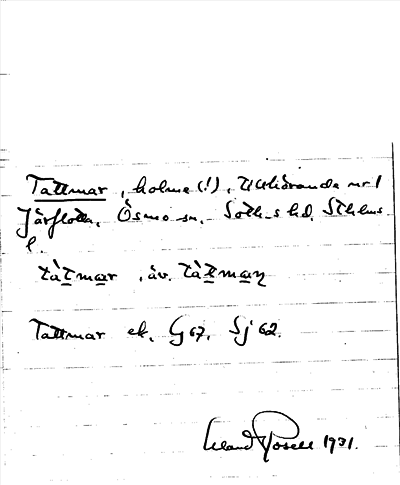 Tattmar, holme (!), tillhörande nr 1
Järflotta. Ösmo sn. Soth-s hd. Sthlms
l.
tàtmar, äv. tàtmaṇ
Tattmar ek. G 67. Sj 62.
Rosell 1931.